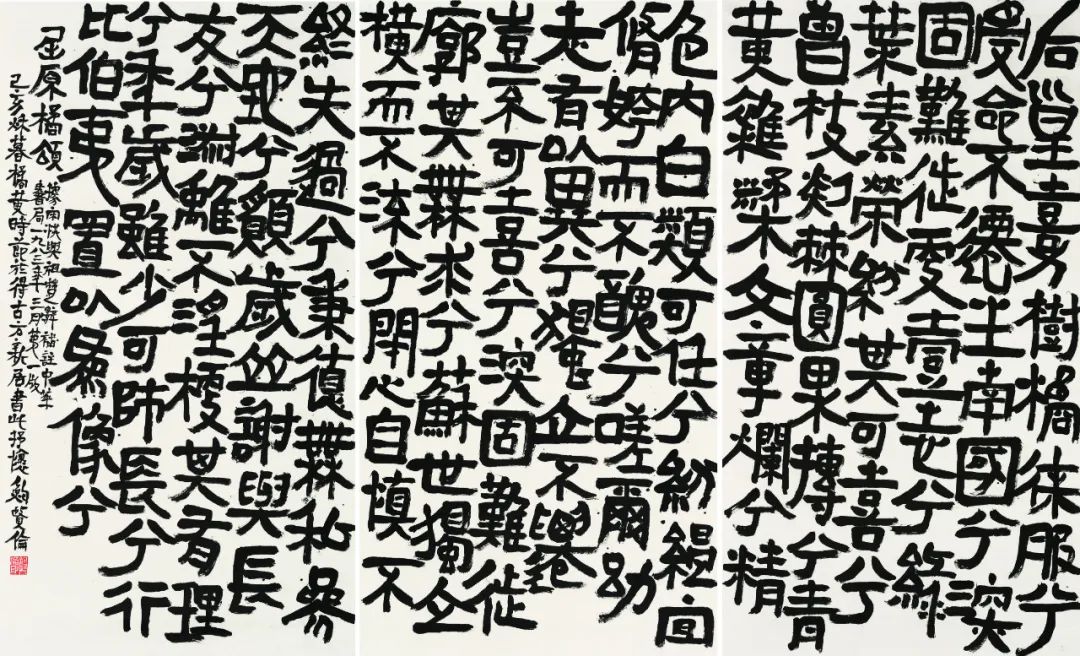 后皇嘉樹橘徠服兮
受命不遷生南國兮深
固難徙更壹志兮綠
葉素榮紛其可喜兮
曾枝剡棘圓果摶兮青
黃雜糅文章爛兮精
色內白類可任兮紛緼宜
脩姱而不醜兮嗟爾幼
志有以異兮獨立不遷
豈不可喜兮深固難徙
廓其無求兮蘇世獨立
橫而不流兮閉心自慎不
終失過兮秉德無私參
天地兮願歲並謝與長
友兮淑離不淫梗其有理
兮年歲雖少可師長兮行
比伯夷置以為像兮
屈原橘頌
據南宋洪興祖楚辭補註中華
書局一九八三年三月第一版
己亥秋暮橘黃時節於得古方新居書此抒懷